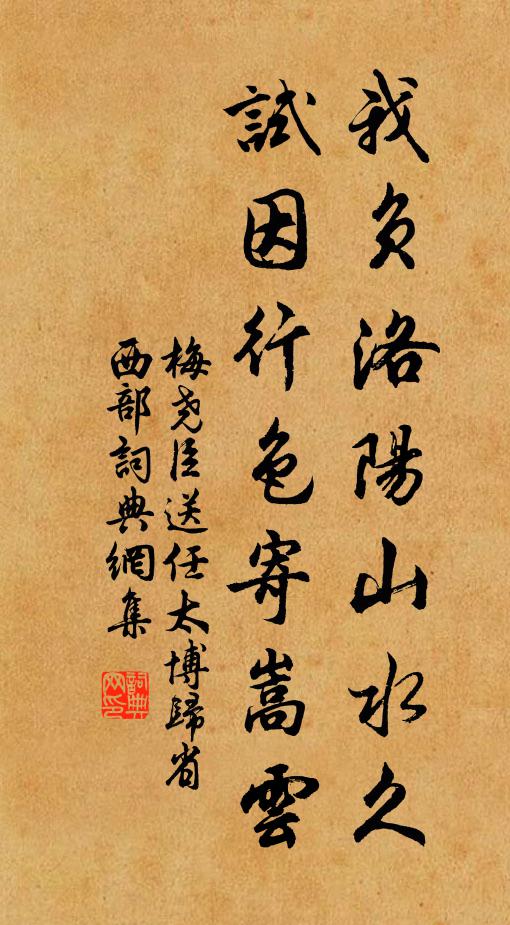 我負洛陽山水久
試因行色寄嵩雲
梅堯臣送任太博歸省
西部詞典網集
詞典
网印